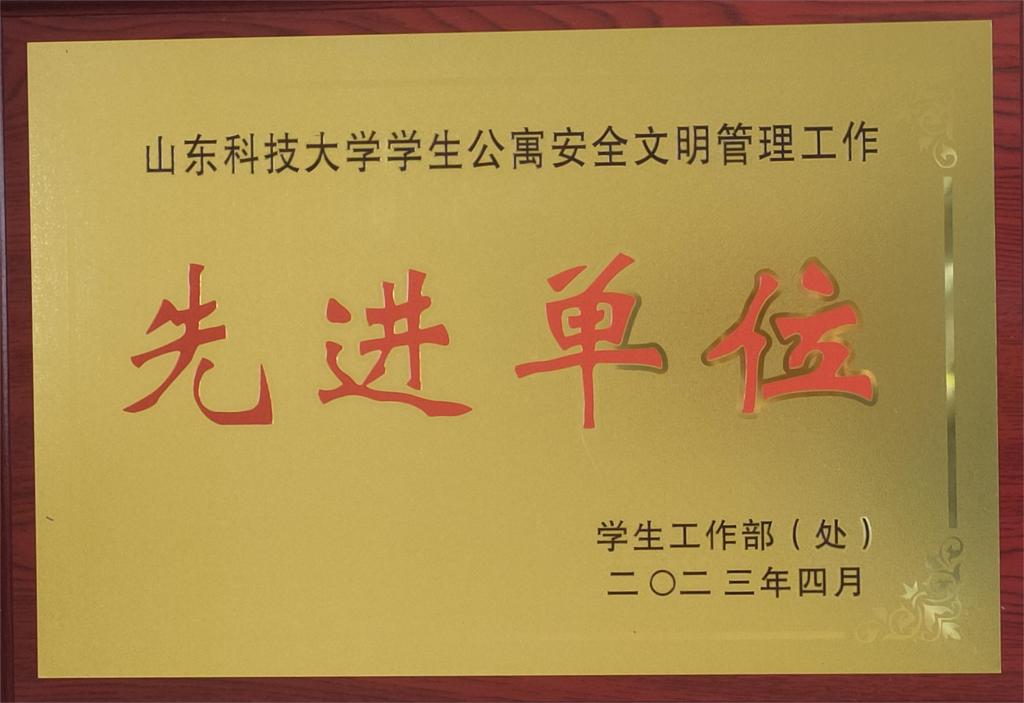 山东科技大学学生公寓安全文明管理工作
先进单位
学生工作部（处）
二〇二三年四月